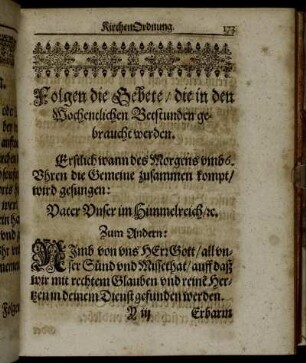 KirchenOrdnung. 173
Folgen die Gebete / die in den
Wochentlichen Beetstunden ge-
braucht werden.
Erstlich wann des Morgens vmb 6.
Vhren die Gemeine zusammen kompt /
wird gesungen:
Vater Vnser im Himmelreich / ꝛc.
Zum Andern:
NImb von vns HErr Gott / all vn-
ser Sünd vnd Missethat / auff daß
wir mit rechtem Glauben vnd reinē Her-
tzen in deinem Dienst gefunden werden.
Y iij Erbarm
Folgen